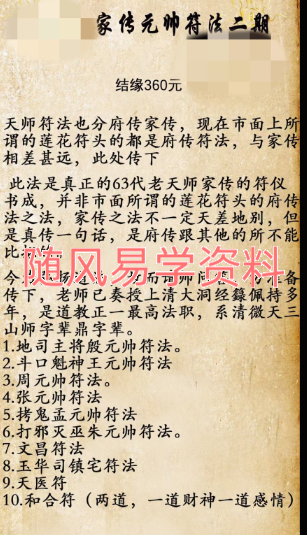 家传元帅符法二期
结缘360元
天师符法也分府传家传，现在市面上所
谓的莲花符头的都是府传符法，与家传
相差甚远，此处传下
此法是真正的63代老天师家传的符仪
书成，并非市面所谓的莲花符头的府传
法之法，家传之法不一定天差地别，但
是真传一句话，是府传跟其他的所不能
随风易学资料
传下，老师已奏授上清大洞经籙佩持多
年，是道教正一最高法职，系清微天三
山师字辈鼎字辈。
1.地司主将殷元帅符法。
2.斗口魁神王元帅符法
3.周元帅符法。
4.张元帅符法
5.拷鬼孟元帅符法
6.打邪灭巫朱元帅符法。
7.文昌符法
8.玉华司镇宅符法
9.天医符
10.和合符（两道，一道财神一道感情）